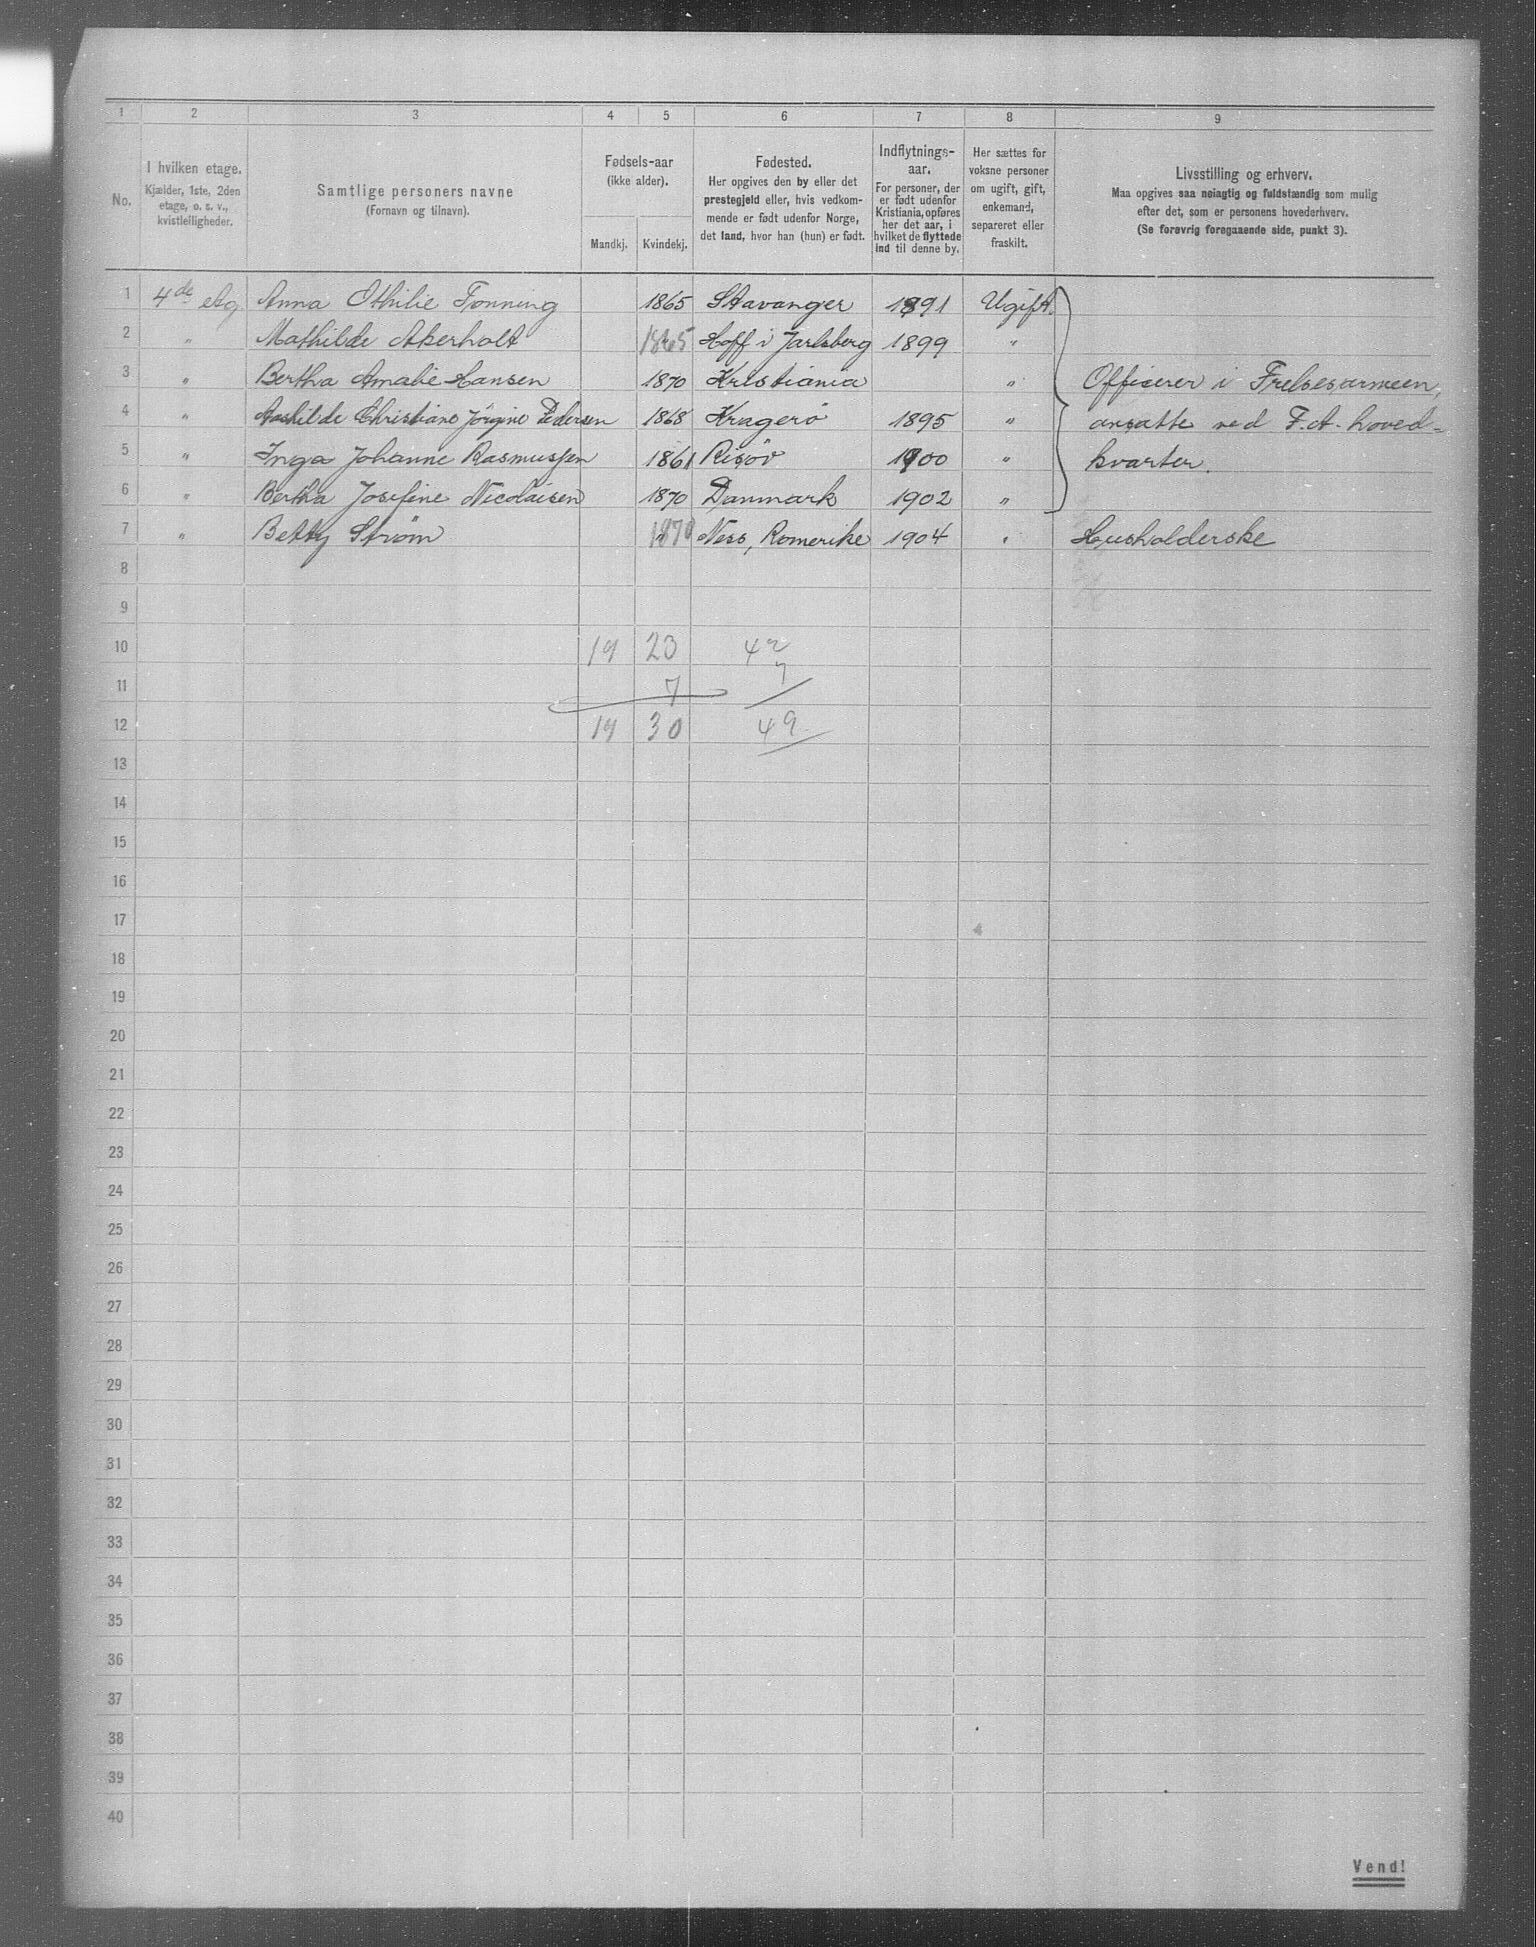 1 2 3 4 5 6 7 8 9
No.
I hvilken etage.
Kjælder, 1ste, 2den
etage, o. s. v.,
kvistleiligheder.
Samtlige personers navne
(Fornavn og tilnavn).
Fødsels-aar
(ikke alder).
Mandkj. Kvindekj.
Fødested.
Her opgives den by eller det
prestegjeld eller, hvis vedkom-
mende er født udenfor Norge,
det land, hvor han (hun) er født.
Indflytnings-
aar.
For personer, der
er født udenfor
Kristiania, opføres
her det aar, i
hvilket de flyttede
ind til denne by.
Her sættes for
voksne personer
om ugift, gift,
enkemand,
separeret eller
fraskilt.
Livsstilling og erhverv.
Maa opgives saa nøiagtig og fuldstændig som mulig
efter det, som er personens hovederhverv.
(Se forøvrig foregaaende side, punkt 3).
1 4de Etg. Anna Othilie Tønning 1865 Stavanger 1891 Ugift.
2 " Mathilde Akerholt 1865 Hoff i Jarlsberg 1899 "
3 " Bertha Amalie Hansen 1870 Kristiania " Officerer i Frelsesarmeen,
4 " Christiane Jörgine Pedersen 1868 Kragerö 1895 " ansatte ved F.A. hoved-
5 " Inga Johanne Rasmussen 1861 Risör 1900 " kvarter.
6 " Bertha Josefine Nicolaisen 1870 Danmark 1902 "
7 " Betty Strøm 1870 Ness, Romerike 1904 " Husholderske
8
9
10 19 23 42
11 7 7
12 19 30 49
13
14
15
16
17
18
19
20
21
22
23
24
25
26
27
28
29
30
31
32
33
34
35
36
37
38
39
40
Vend!